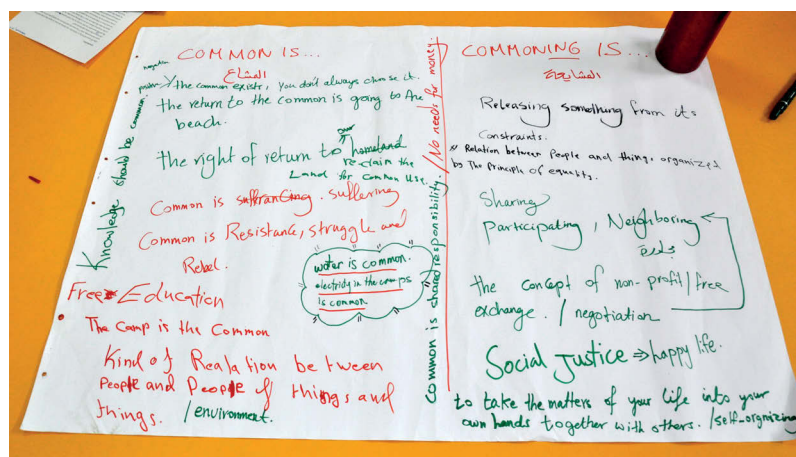 COMMON IS...
المشاع
the common exists, You don't always choose it.
the return to the common is going to the
beach.
the right of return to our homeland
reclaim the
Land for common Use.
Common is suffering
Common is Resistance, struggle and
Rebel.
water is common.
electricity in the camps
is common
Free Education
The camp is the Common
Kind of Realation between
People and People of things and
things. /environment.
Knowledge should be common.
common is shared responsibility. /No needs for money.
COMMONING IS...
المشايعة
Releasing something from its
constraints.
Relation between people and things, organized
by The principle of equality.
Sharing
Participating, Neighboring
the concept of non-profit/free
exchange. / negotiation
Social Justice ⇒ happy life.
to take the matters of your life into your
own hands together with others. /self-orgnizing